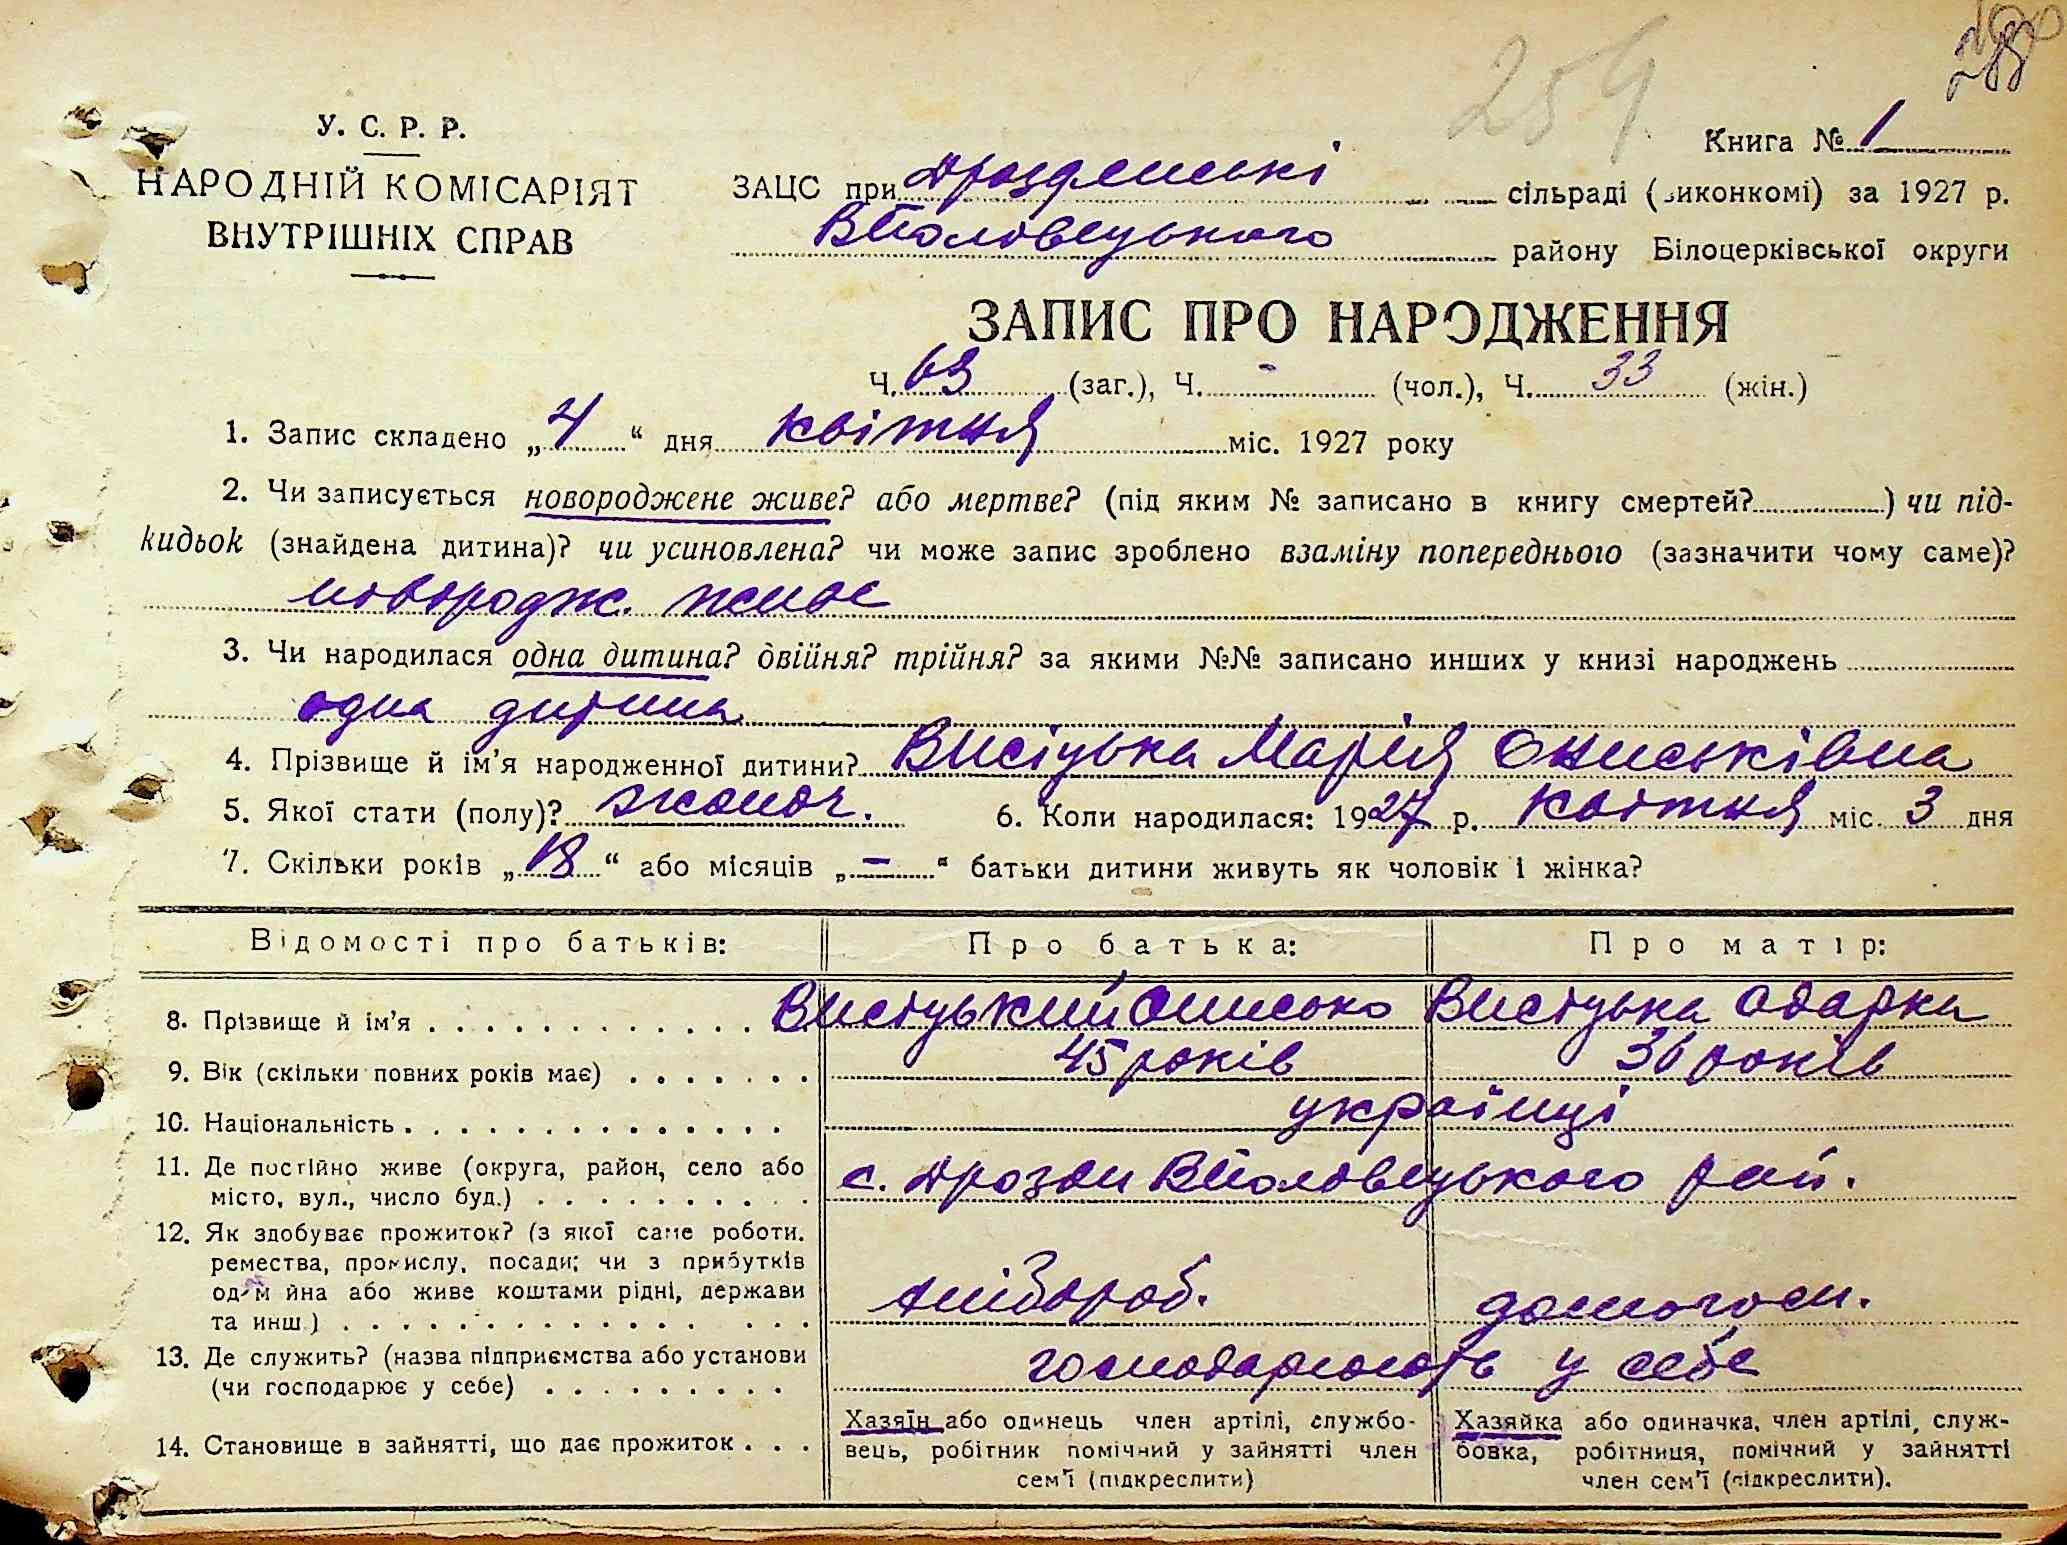 254
У. С. Р. Р.
НАРОДНІЙ КОМІСАРІЯТ
ВНУТРІШНІХ СПРАВ
Книга № 1
ЗАЦС при Дрозденські сільраді (виконкомі) за 1927 р.
ВПоловецького району Білоцерківської округи
ЗАПИС ПРО НАРОДЖЕННЯ
Ч. 63 (заг.), Ч. - (чол.), Ч. 33 (жін.)
1. Запис складено „4“ дня квітня міс. 1927 року
2. Чи записується новороджене живе? або мертве? (під яким № записано в книгу смертей? ) чи під-
кидьок (знайдена дитина)? чи усиновлена? чи може запис зроблено взаміну попереднього (зазначити чому саме)?
новородж. живе
3. Чи народилася одна дитина? двійня? трійня? за якими №№ записано инших у книзі народжень
одна дитина
4. Прізвище й ім’я народженної дитини? Висіцька Марія Ониськівна
5. Якої стати (полу)? жіноч. 6. Коли народилася: 1927 р. квітня міс. 3 дня
7. Скільки років „18“ або місяців „—“ батьки дитини живуть як чоловік і жінка?
Відомості про батьків: Про батька: Про матір:
8. Прізвище й ім’я . . . . . . . . . . . . Висіцький Онисько Висіцька Одарка
9. Вік (скільки повних років має) . . . . . . . 45 років 36 років
10. Національність . . . . . . . . . . . . . . українці
11. Де постійно живе (округа, район, село або
місто, вул., число буд.) . . . . . . . . . . с. Дрозди ВПоловецького рай.
12. Як здобуває прожиток? (з якої саме роботи.
ремества, промислу, посади; чи з прибутків
од майна або живе коштами рідні, держави
та инш.) . . . . . . . . . . . . . . . . . хлібороб. домогосп.
13. Де служить? (назва підприємства або установи
(чи господарює у себе) . . . . . . . . . господарюють у себе
14. Становище в зайнятті, що дає прожиток . . .
Хазяїн або одинець член артілі, службо-
вець, робітник помічний у зайнятті член
сем’ї (підкреслити)
Хазяйка або одиначка, член артілі, служ-
бовка, робітниця, помічний у зайнятті
член сем’ї (підкреслити).